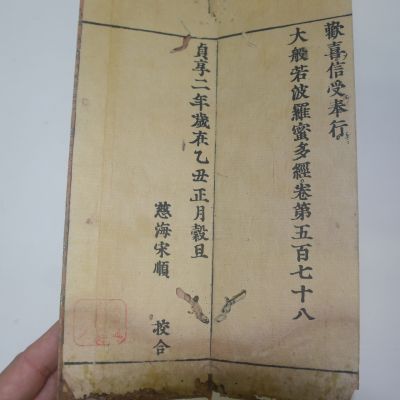 歡喜信受奉行
大般若波羅蜜多經卷第五百七十八
貞享二年歲在乙丑正月穀旦
慈海宋順 挍合